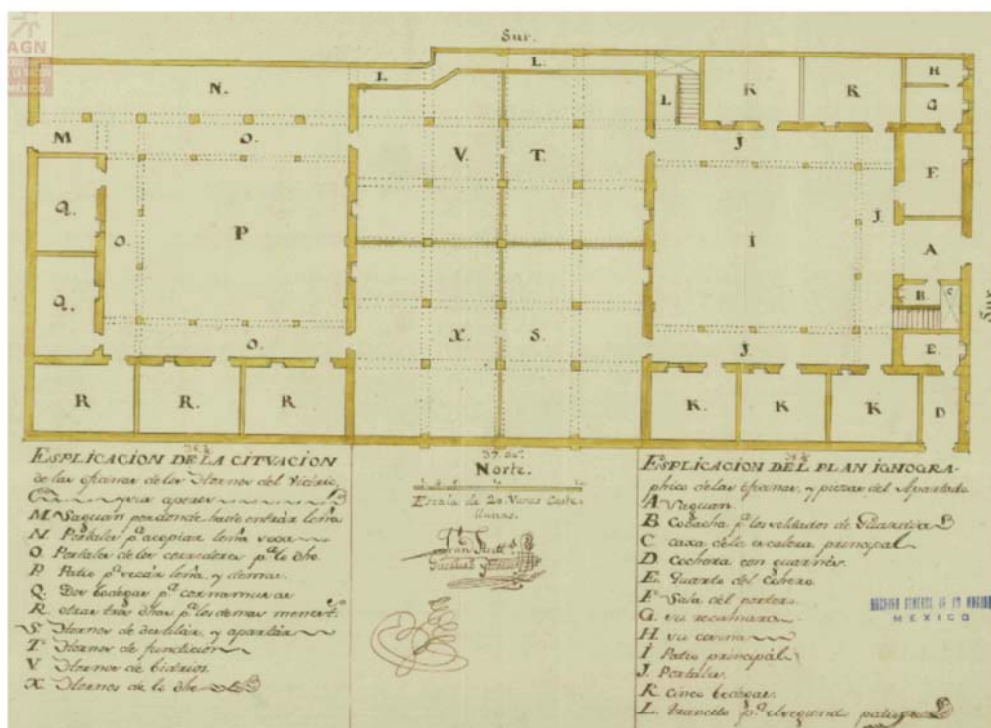 AGN
MÉXICO
Sur.
N.
L.
L.
L
K
K
H
G
M
O.
V.
T.
J
F.
Q.
O.
P
İ
J.
A
Q.
B.
C
Sur
X.
S.
O.
J.
E.
R
R.
R
K.
K
K
D
ESPLICACION DE LA CITVACION
de las oficinas de los Hornos del Vidrio,
M. Saguan por donde ha de entrar leña
N. Portales pª acopiar leña seca
O. Portales de los corredores pª lo dho.
P. Patio pª secar leña, y demas.
Q. Dos bodegas pª
R. otras tres dhas pª los demas
S. Hornos de destilar, y apartar
T. Hornos de fundicion
V. Hornos de bidrios.
X. Hornos de lo dho
Norte.
Escala de 20 Varas Caste-
llanas.
ESPLICACION DEL PLAN IGNOGRA-
phico de las oficinas, y piezas del Apartado
A. Saguan.
B. Cobacha pª los soldados de Guardia
C. caxa de la escalera principal
D. Cochera con guarnés.
E. Quarto del Cochero.
F. Sala del portero.
G. su recamara.
H. su cocina
İ. Patio principal
J. Portales.
K. Cinco bodegas.
L. Trancito pª el segundo patio
ARCHIVO GENERAL DE LA NACION
MEXICO